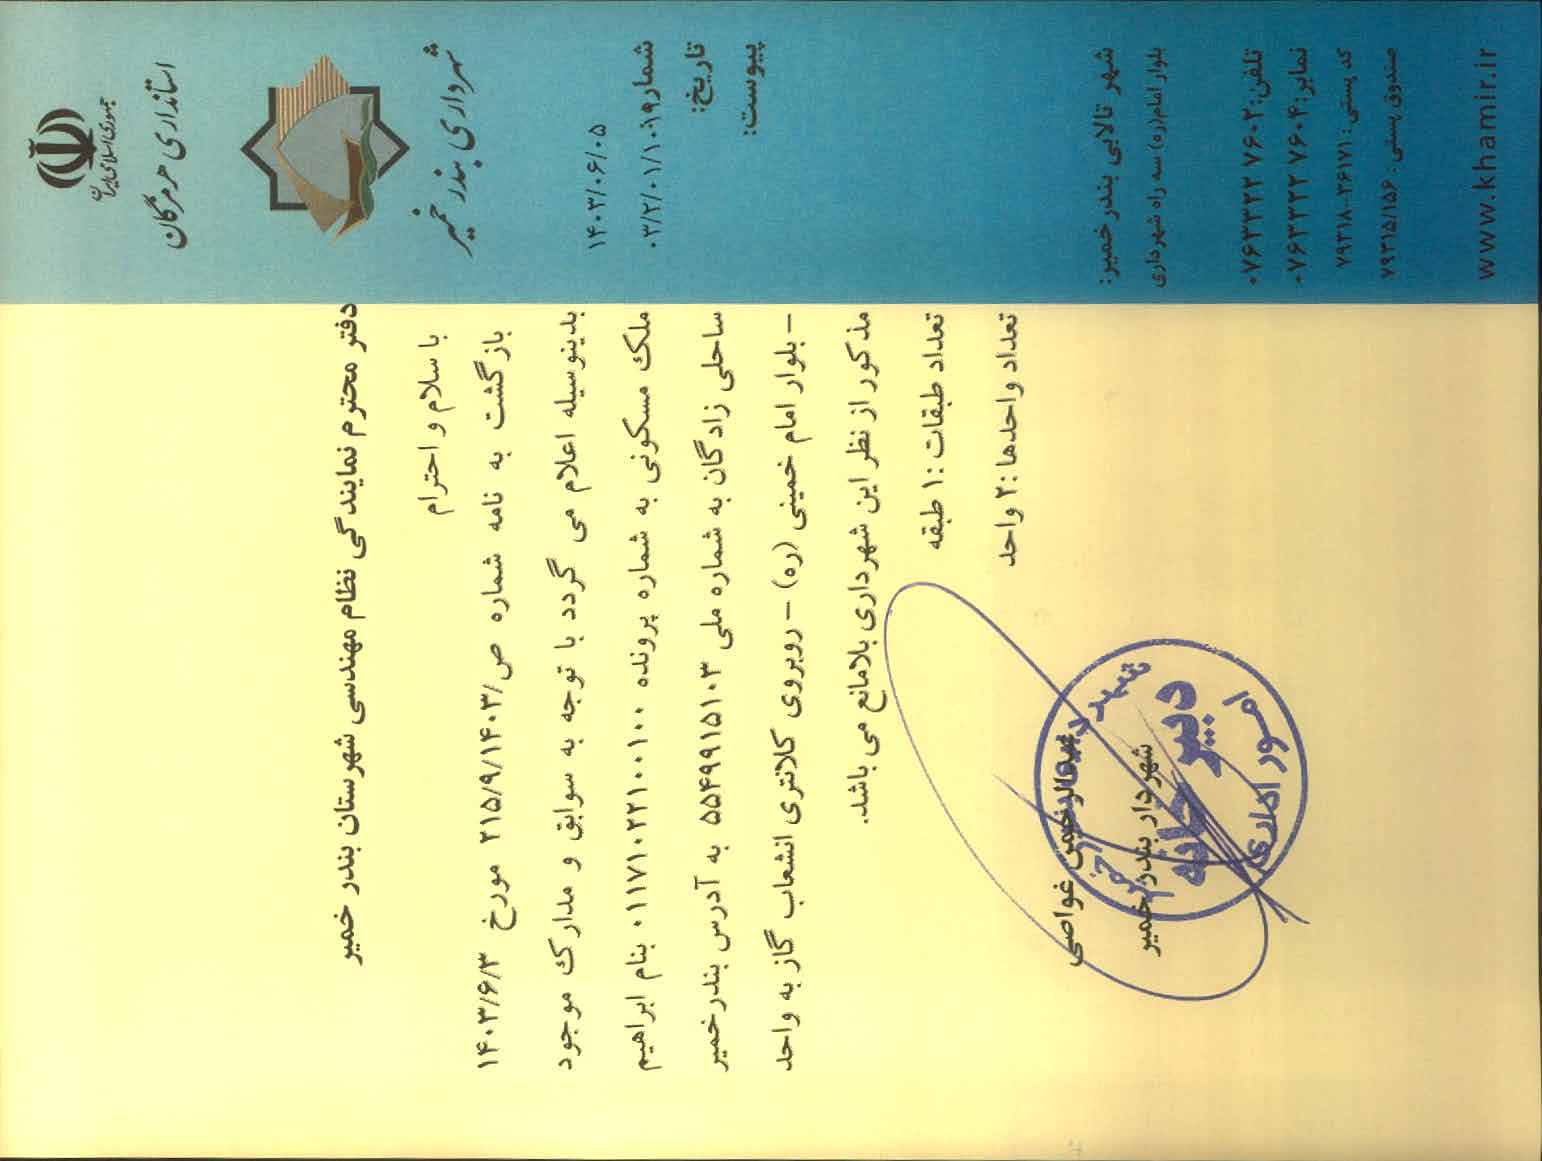 جمهوری اسلامی ایران
استانداری هرمزگان
شهرداری بندر خمیر
۱۴۰۳/۰۶/۰۵
شماره
تاریخ:
پیوست:
دفتر محترم نمایندگی نظام مهندسی شهرستان بندر خمیر
با سلام و احترام
بازگشت به نامه شماره ص/۲۱۵/۹/۱۴۰۳ مورخ ۱۴۰۳/۶/۳
بدینوسیله اعلام می گردد با توجه به سوابق و مدارک موجود
ملک مسکونی به شماره پرونده ۰۱۱۷۱۰۲۲۱۰۰۱۰۰ بنام ابراهیم
ساحلی زادگان به شماره ملی ۵۵۴۹۹۱۵۱۰۳ به آدرس بندرخمیر
– بلوار امام خمینی (ره) – روبروی کلانتری انشعاب گاز به واحد
مذکور از نظر این شهرداری بلامانع می باشد.
تعداد طبقات :۱ طبقه
تعداد واحدها :۲ واحد
عبدالرحمن غواصی
شهردار بندر خمیر
دبیرخانه
امور اداری
شهر تالابی بندرخمیر:
بلوار امام(ره) سه راه شهرداری
تلفن:۰۷۶۳۳۲۲۷۶۰۲
نمابر:۰۷۶۳۳۲۲۷۶۰۴
کد پستی: ۷۹۳۱۸-۳۶۱۷۱
صندوق پستی: ۷۹۳۱۵/۱۵۶
www.khamir.ir